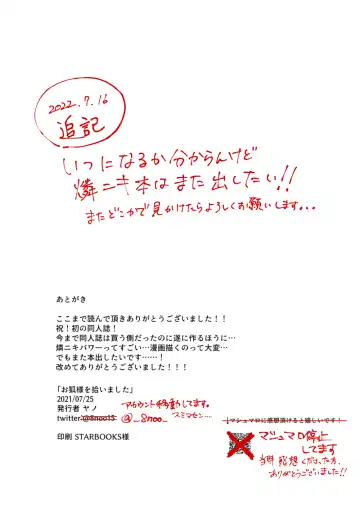 2022.7.16
追記
いつになるか分からんけど
燐ニキ本はまた出したい!!
またどこかで見かけたらよろしくお願いします...
あとがき
ここまで読んで頂きありがとうございました!!
祝!初の同人誌!
今まで同人誌は買う側だったのに遂に作るほうに…
燐ニキパワーってすごい…漫画描くのって大変…
でもまた本出したいです……!
改めてありがとうございました!!!
「お狐様を拾いました」
2021/07/25
発行者 ヤノ
アカウント移動してます。
twitter:@8noo15 @_8noo_ スミマセン…
印刷 STARBOOKS様
↓マシュマロに感想頂けると嬉しいです!
マシュマロ停止
してます
当時感想くださった方、
ありがとうございました!!